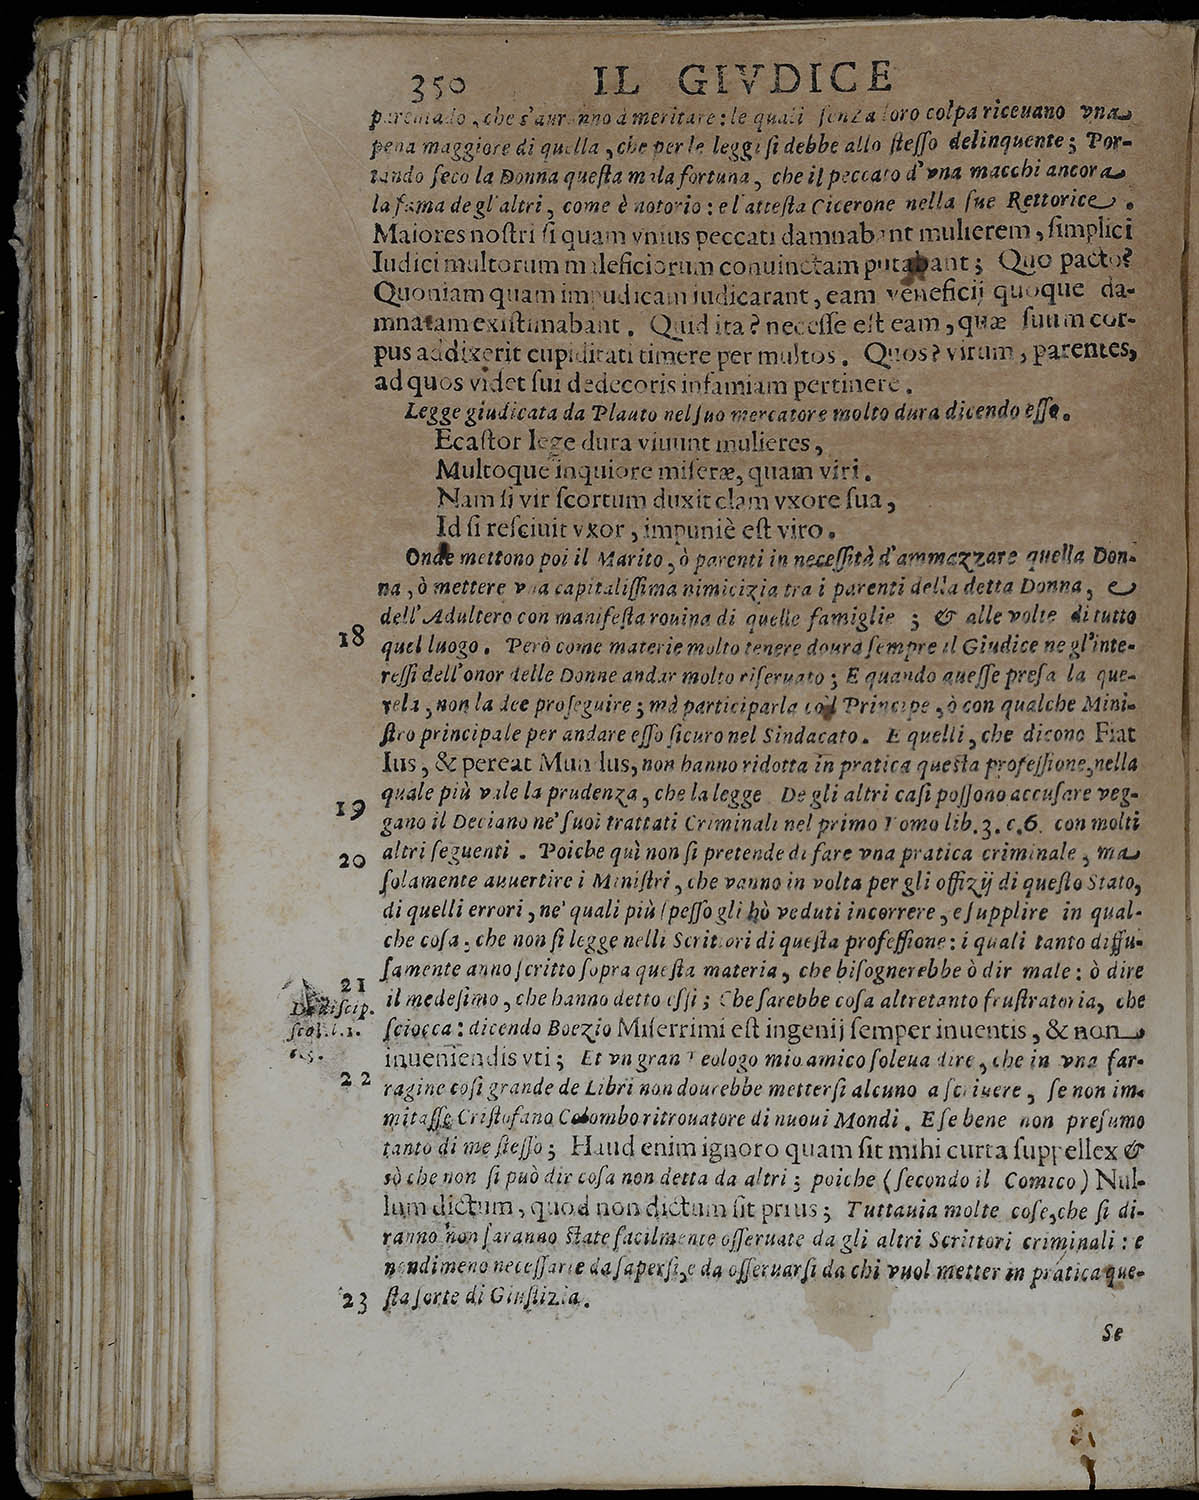 350 IL GIVDICE
parentado, che s'auranno à meritare: le quali senza loro colpa riceuano vna
pena maggiore di quella, che per le leggi si debbe allo stesso delinquente; Por-
tando seco la Donna questa mala fortuna, che il peccato d'vna macchi ancora
la fama de gl'altri, come è notorio: e l'attesta Cicerone nella sue Rettorice.
Maiores nostri si quam vnius peccati damnabant mulierem, simplici
Iudici multorum maleficiorum conuinctam putabant; Quo pacto?
Quoniam quam impudicam iudicarant, eam veneficij quoque da-
mnatam existimabant. Quid ita? necesse est eam, quæ suum cor-
pus addixerit cupiditati timere per multos. Quos? virum, parentes,
ad quos videt sui dedecoris infamiam pertinere.
Legge giudicata da Plauto nel suo mercatore molto dura dicendo esso.
Ecastor lege dura viuunt mulieres,
Multoque inquiore miseræ, quam viri.
Nam si vir scortum duxit clam vxore sua,
Id si resciuit vxor, impuniè est viro.
Onde mettono poi il Marito, ò parenti in necessità d'ammazzare quella Don-
na, ò mettere vna capitalissima nimicizia tra i parenti della detta Donna, e
dell'Adultero con manifesta rouina di quelle famiglie; & alle volte di tutto
18 quel luogo. Però come materie molto tenere dourà sempre il Giudice ne gl'inte-
ressi dell'onor delle Donne andar molto riseruato; E quando auesse presa la que-
rela, non la dee proseguire; mà participarla col Principe, ò con qualche Mini-
stro principale per andare esso sicuro nel Sindacato. E quelli, che dicono Fiat
Ius, & pereat Mundus, non hanno ridotta in pratica questa professione, nella
19 quale più vale la prudenza, che la legge De gli altri casi possono accusare veg-
gano il Deciano ne' suoi trattati Criminali nel primo Tomo lib. 3. c. 6. con molti
20 altri seguenti. Poiche quì non si pretende di fare vna pratica criminale, ma
solamente auuertire i Ministri, che vanno in volta per gli offizij di questo Stato,
di quelli errori, ne' quali più spesso gli hò veduti incorrere, e supplire in qual-
che cosa, che non si legge nelli Scrittori di questa professione: i quali tanto diffu-
samente anno scritto sopra questa materia, che bisognerebbe ò dir male: ò dire
21 il medesimo, che hanno detto essi; Che sarebbe cosa altretanto frustratoria, che
De discip.
scol. l. 1.
c. 5.
sciocca: dicendo Boezio Miserrimi est ingenij semper inuentis, & non
inueniendis vti; Et vn gran Teologo mio amico soleua dire, che in vna far-
22 ragine cosi grande de Libri non dourebbe mettersi alcuno a scriuere, se non im-
mitasse Cristofano Colombo ritrouatore di nuoui Mondi. E se bene non presumo
tanto di me stesso; Haud enim ignoro quam sit mihi curta suppellex &
sò che non si può dir cosa non detta da altri; poiche (secondo il Comico) Nul-
lum dictum, quod non dictum sit prius; Tuttauia molte cose, che si di-
ranno non saranno state facilmente osseruate da gli altri Scrittori criminali: e
nondimeno necessarie da sapersi, e da osseruarsi da chi vuol metter in pratica que-
23 sta sorte di Giustizia.
Se